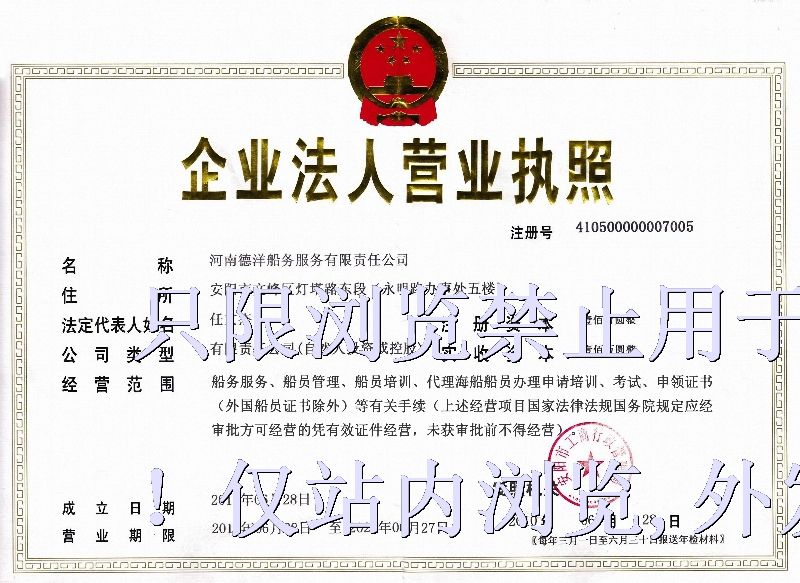 企业法人营业执照
注册号 410500000007005
名称 河南德洋船务服务有限责任公司
住所 安阳市文峰区灯塔路东段 永明路办事处五楼
法定代表人姓名 任 注册资本 壹佰万圆整
公司类型 有限责任公司(自然人投资或控股) 实收资本 壹佰万圆整
只限浏览禁止用于
经营范围 船务服务、船员管理、船员培训、代理海船船员办理申请培训、考试、申领证书
(外国船员证书除外)等有关手续(上述经营项目国家法律法规国务院规定应经
审批方可经营的凭有效证件经营，未获审批前不得经营)
安阳市工商行政管
！仅站内浏览,外发
登记机关
成立日期 06月28日
营业期限 06月28日 至 06月27日 2010年 06月 28日
《每年三月一日至六月三十日报送年检材料》